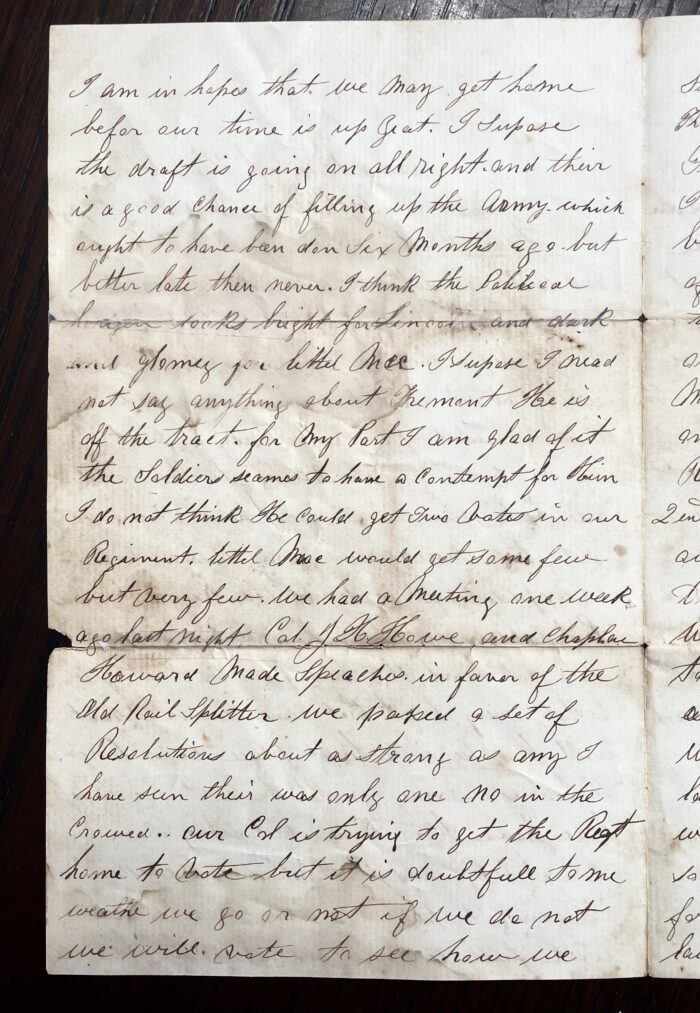 I am in hopes that we may get home
befor our time is up yeat. I supose
the draft is going on all right. and their
is a good chance of filling up the Army. which
ought to have ben don six Months ago. but
better late then never. I think the Political
horizen looks bright for Lincoln and dark
and glomey for littel Mac. I supose I nead
not say anything about Fremont He is
off the tract. for My Part I am glad of it
the Soldiers seames to have a contempt for Him
I do not think He could get Two Votes in our
Regiment. littel Mac would get some few
but very few. we had a Meeting one week
ago last night Col J H Howe and Chaplan
Howard Made Speaches in favor of the
Old Rail Splitter. we passed a set of
Resolutions about as strong as any I
have seen their was only one No in the
Crowed.. our Col is trying to get the Regt
home to Vote but it is doubtfull to me
weathe we go or not if we do not
we will. vote to see how we
2nd